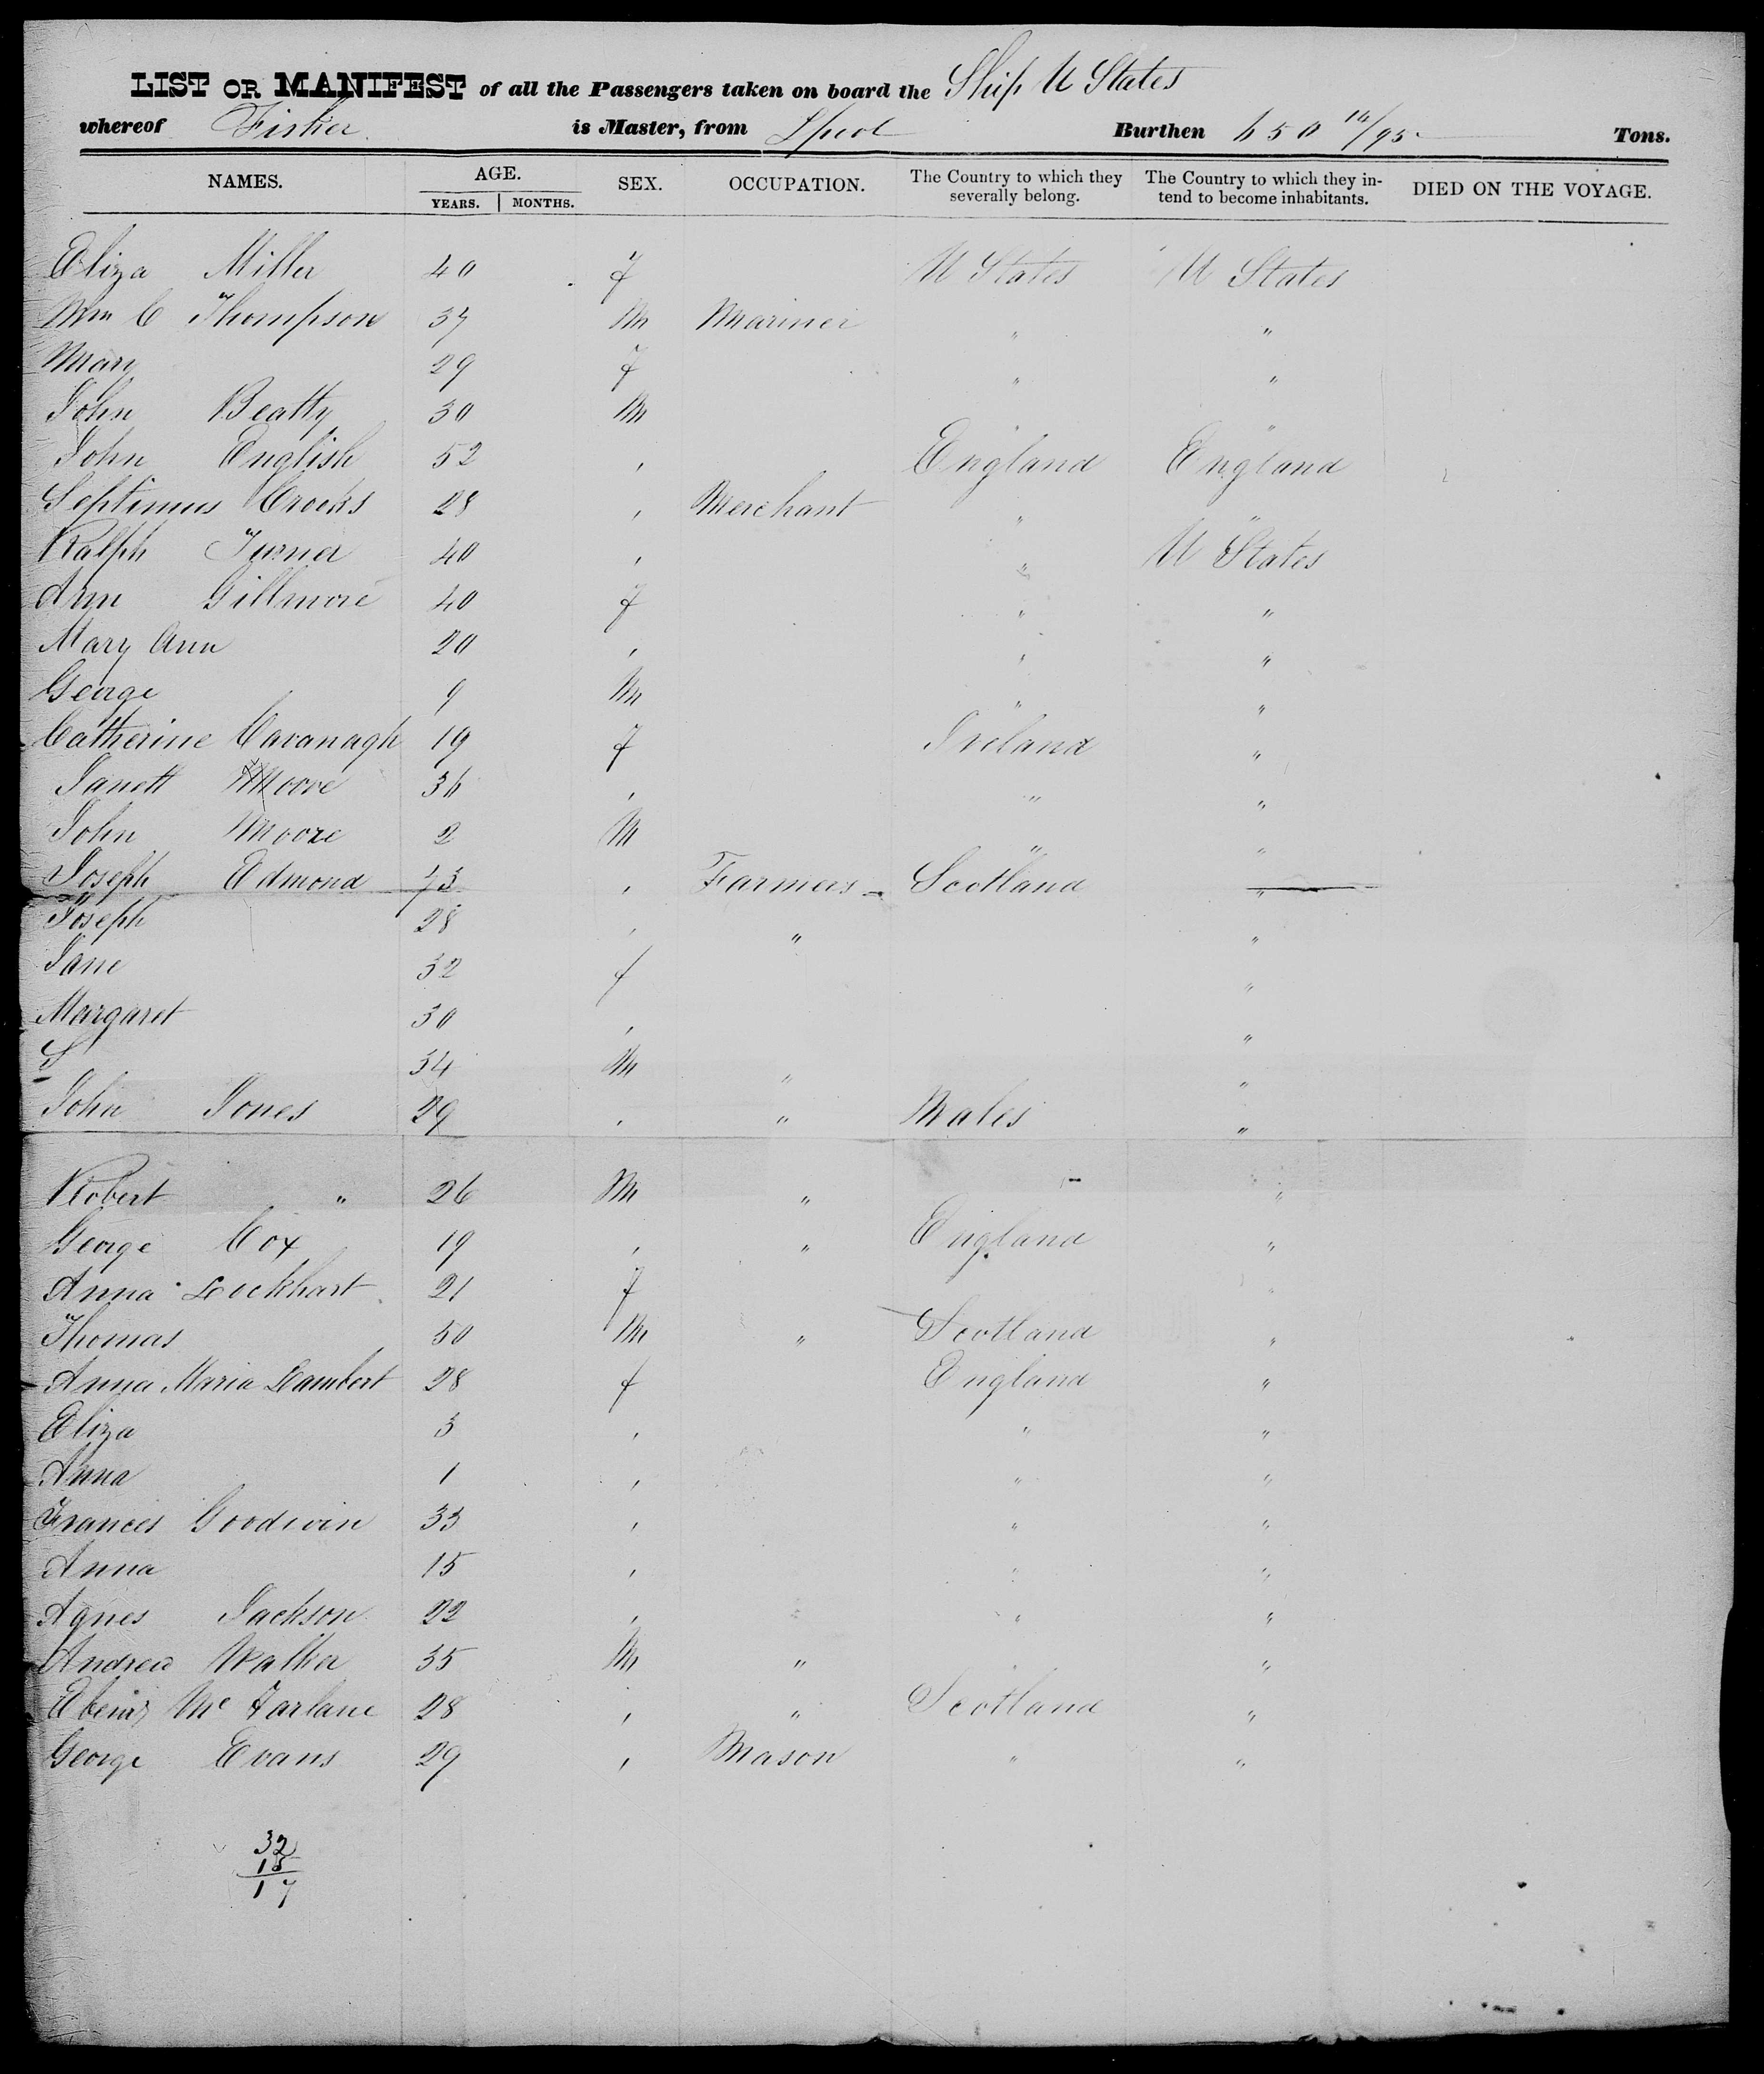 LIST OR MANIFEST of all the Passengers taken on board the Ship U States
whereof Fisher is Master, from Lpool Burthen 650 Tons.
NAMES. AGE. YEARS. MONTHS. SEX. OCCUPATION. The Country to which they severally belong. The Country to which they intend to become inhabitants. DIED ON THE VOYAGE.
Eliza Miller 40 f U States U States
Wm C Thompson 37 M Mariner " "
Mary 29 f " "
John Beatty 30 M " "
John English 52 , England England
Septimus Crooks 28 , Merchant " "
Ralph Turner 40 , " U States
Ann Gillmore 40 f " "
Mary Ann 20 , " "
George 9 M " "
Catherine Cavanagh 19 f Ireland "
Janett Moore 36 , " "
John Moore 2 M " "
Joseph Edmond 73 , Farmers Scotland "
Joseph 28 , " "
Jane 32 f "
Margaret 30 , "
S 34 M " "
John Jones 29 , " Wales "
Robert " 26 M " "
George Cox 19 , " England "
Anna Lockhart 21 f "
Thomas 50 M " Scotland "
Anna Maria Lambert 28 f England "
Eliza 3 , " "
Anna 1 , " "
Frances Goodwin 33 , " "
Anna 15 , " "
Agnes Jackson 22 , " "
Andrew Walker 35 M " "
Ebenz McFarlane 28 , " Scotland "
George Evans 29 , Mason " "
32
15
17